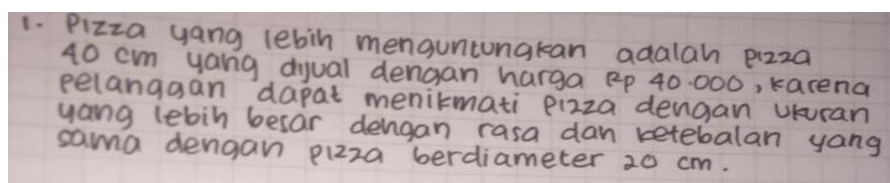 1. Pizza yang lebih menguntungkan adalah pizza
40 cm yang dijual dengan harga Rp 40.000, karena
pelanggan dapat menikmati pizza dengan ukuran
yang lebih besar dengan rasa dan ketebalan yang
sama dengan pizza berdiameter 20 cm.